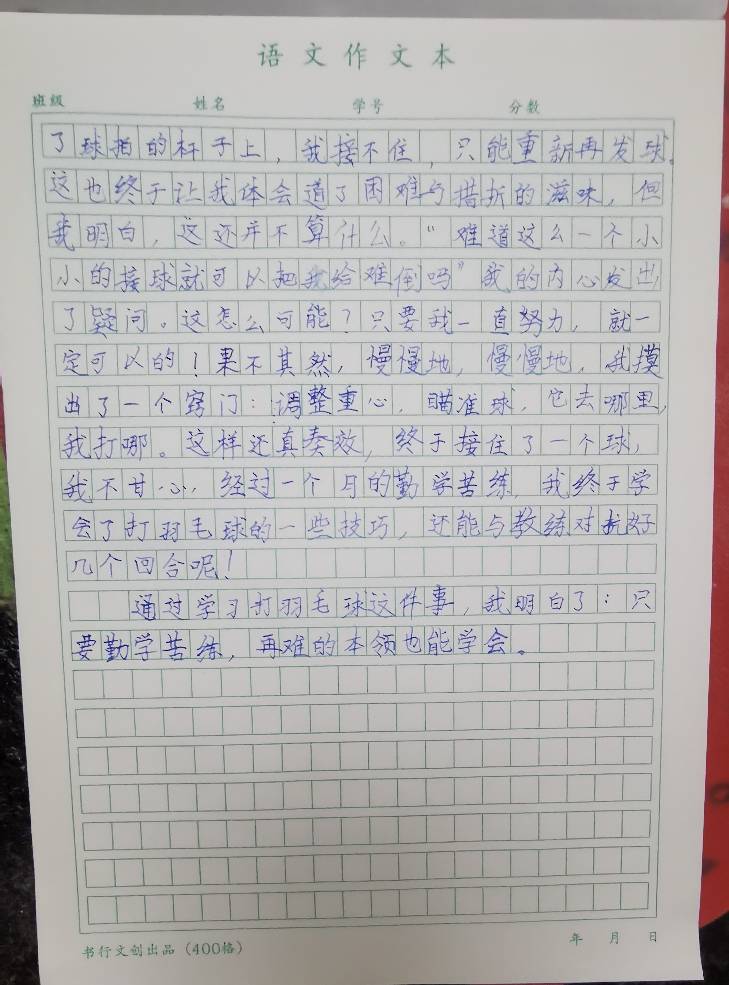 语文作文本
班级 姓名 学号 分数
了球拍的杆子上，我接不住，只能重新再发球。
这也终于让我体会道了困难与措折的滋味，但
我明白，这还并不算什么。“难道这么一个小
小的接球就可以把我给难倒吗”我的内心发出
了疑问。这怎么可能？只要我一直努力，就一
定可以的！果不其然，慢慢地，慢慢地，我摸
出了一个窍门：调整重心，瞄准球，它去哪里，
我打哪。这样还真奏效，终于接住了一个球，
我不甘心，经过一个月的勤学苦练，我终于学
会了打羽毛球的一些技巧，还能与教练对抗好
几个回合呢！
通过学习打羽毛球这件事，我明白了：只
要勤学苦练，再难的本领也能学会。
书行文创出品（400格） 年 月 日